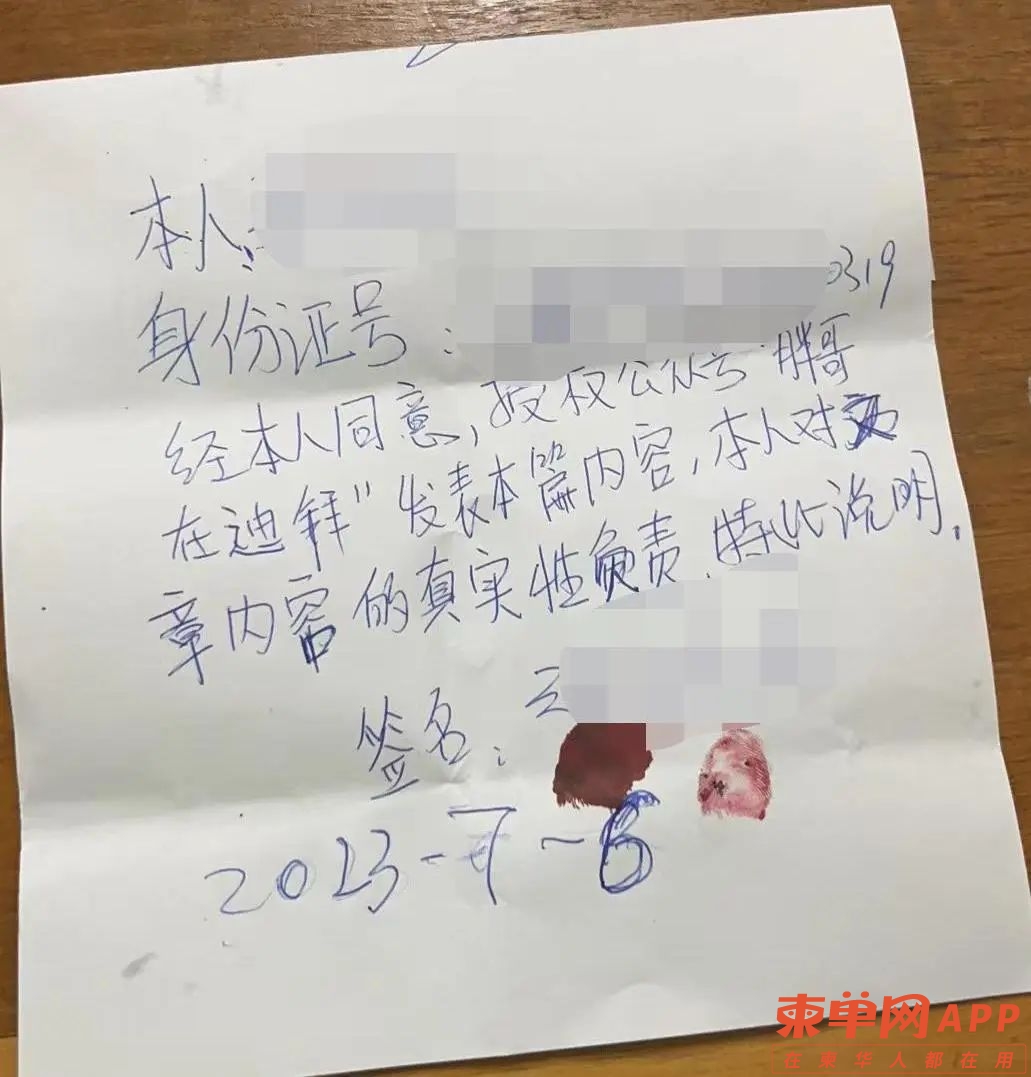 本人:
身份证号: 0319
经本人同意,授权公众号"胖哥
在迪拜"发表本篇内容,本人对文
章内容的真实性负责.特此说明.
签名:
2023-7-6
柬单网APP
在柬华人都在用